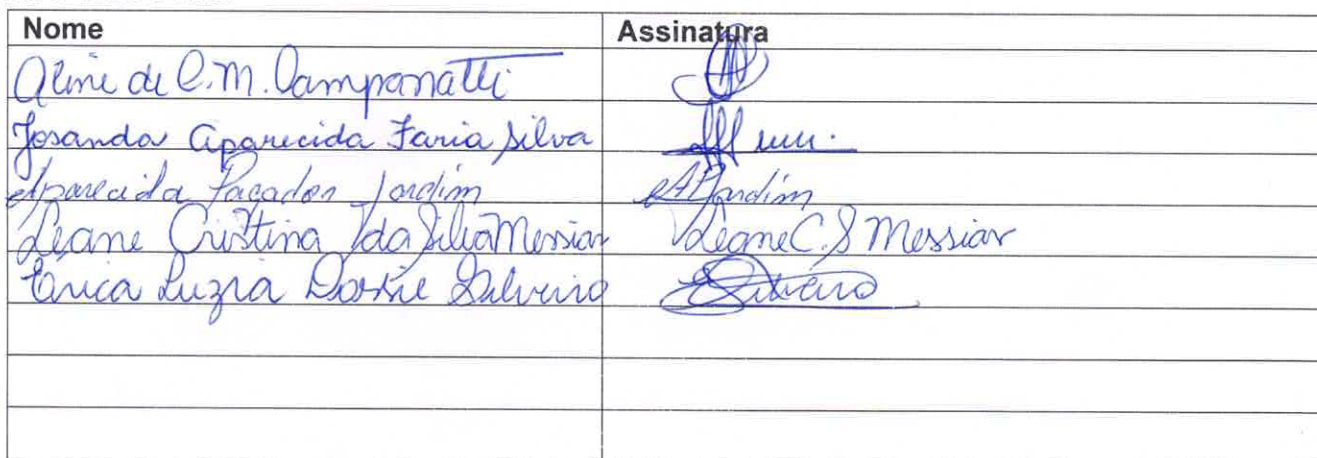 Nome Assinatura
Aline de C. M. Campanatti
Josanda Aparecida Faria Silva
Aparecida Paçador Jardim APJardim
Leane Cristina da Silva Messias Leane C. S Messias
Érica Luzia Silveiro ESilveiro